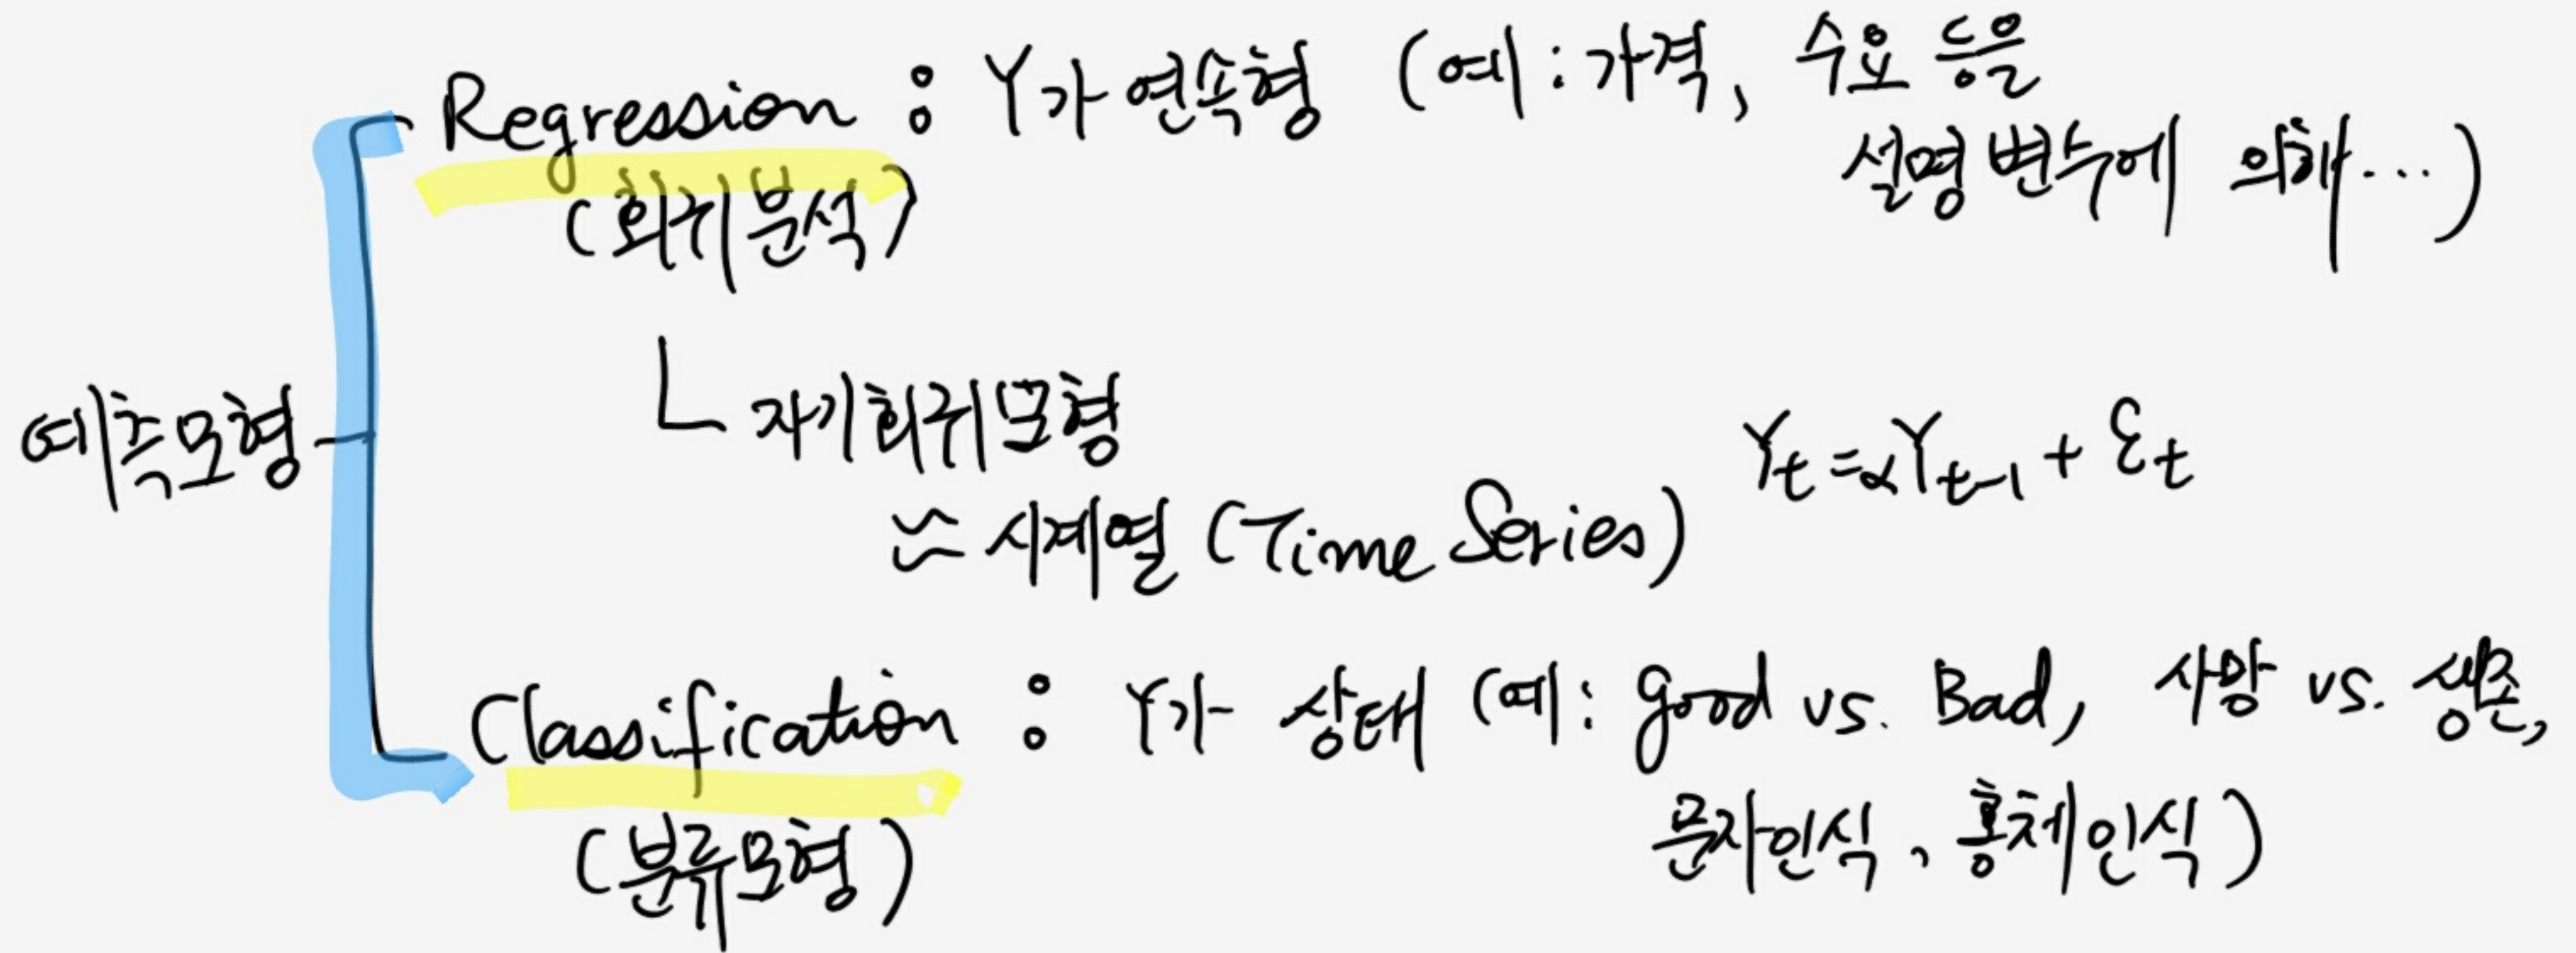 Regression : Y가 연속형 (예 : 가격, 수요 등을
설명변수에 의해...)
(회귀분석)
예측모형
자기회귀모형
≈ 시계열 (Time Series)
Yt = αYt-1 + εt
Classification : Y가 상태 (예 : Good vs. Bad, 사망 vs. 생존,
문자인식, 홍체인식)
(분류모형)